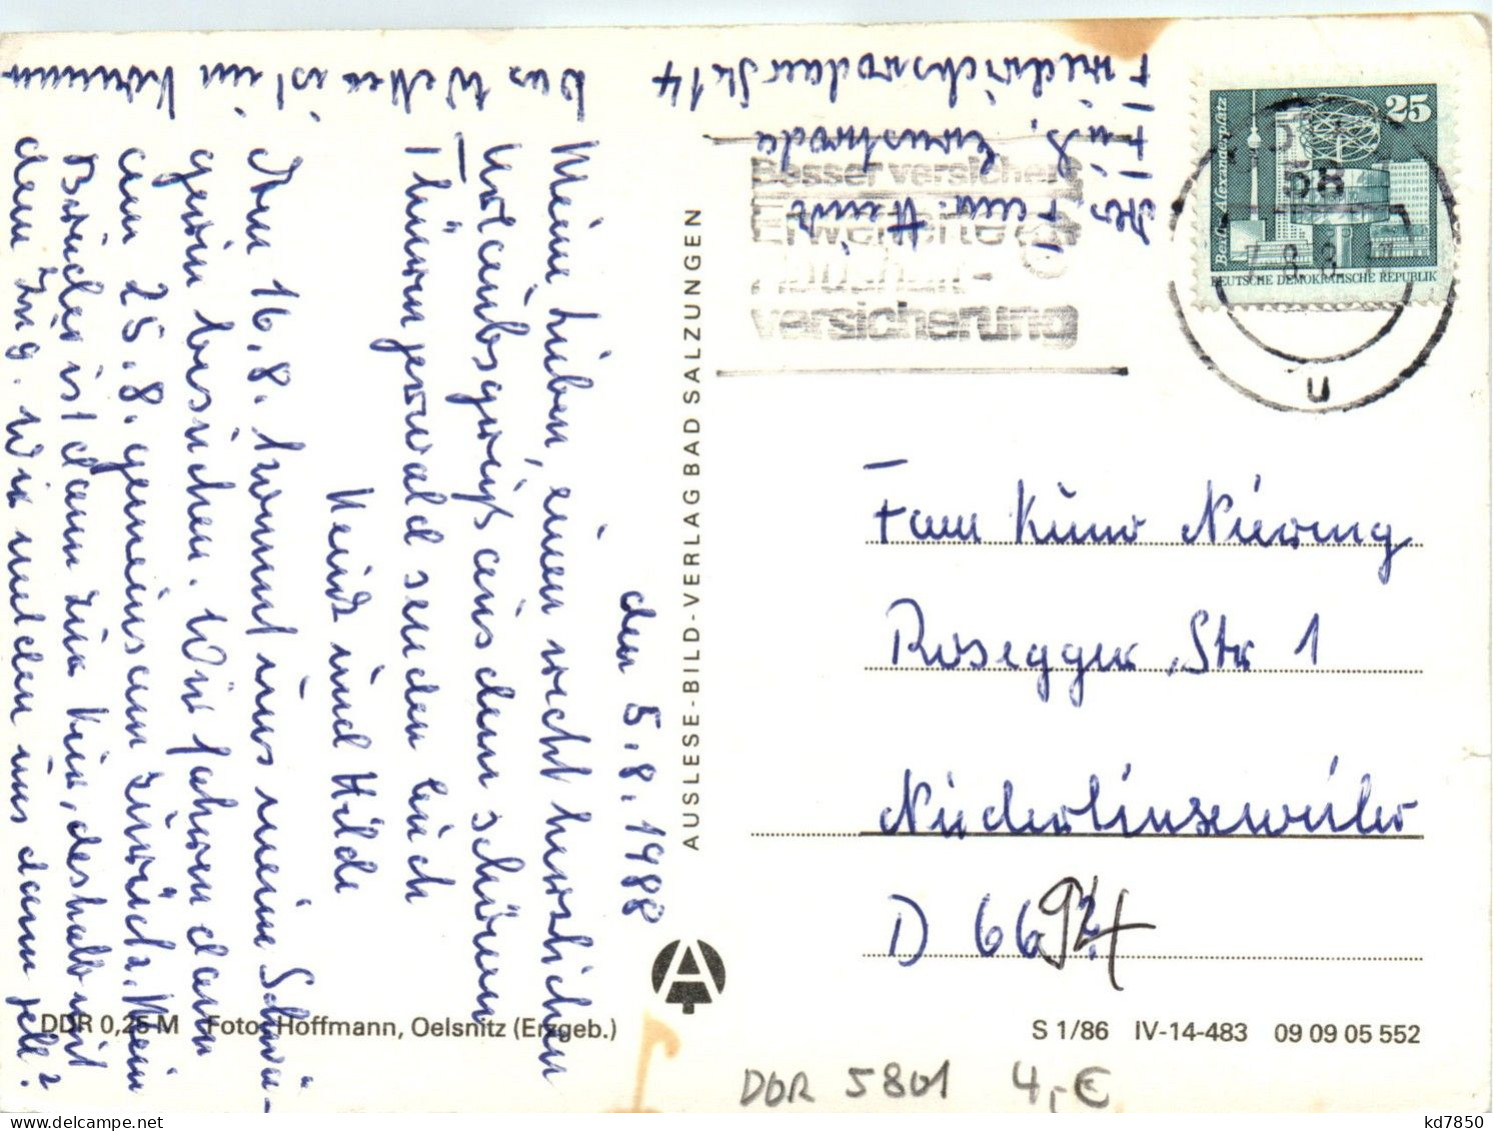 den 5.8.1988
Meine Lieben, einen recht herzlichen
Urlaubsgruß aus dem schönen
Thüringerwald senden Euch
Heinz und Hilde
Am 16.8. kommt uns meine Schwä-
gerin besuchen. Wir fahren dann
am 25.8. gemeinsam zurück. Mein
Bruder ist dann zur Kur, deshalb mit
dem Zug. Wir melden uns dann gell?
Das Wetter ist ein
Abs. Fam. Heinz
Fuß, Ernstroda
Friedrichrodaer Str 14
AUSLESE-BILD-VERLAG BAD SALZUNGEN
Besser versichert
Erweiterte
Haushalt-
versicherung
25
Berlin, Alexanderplatz
DEUTSCHE DEMOKRATISCHE REPUBLIK
58
u
Fam Kuno
Rosegger Str 1
Niederlinxweiler
D 6692
DDR 0,25 M Foto: Hoffmann, Oelsnitz (Erzgeb.)
S 1/86 IV-14-483 09 09 05 552
DDR 5801 4,-€
kd7850